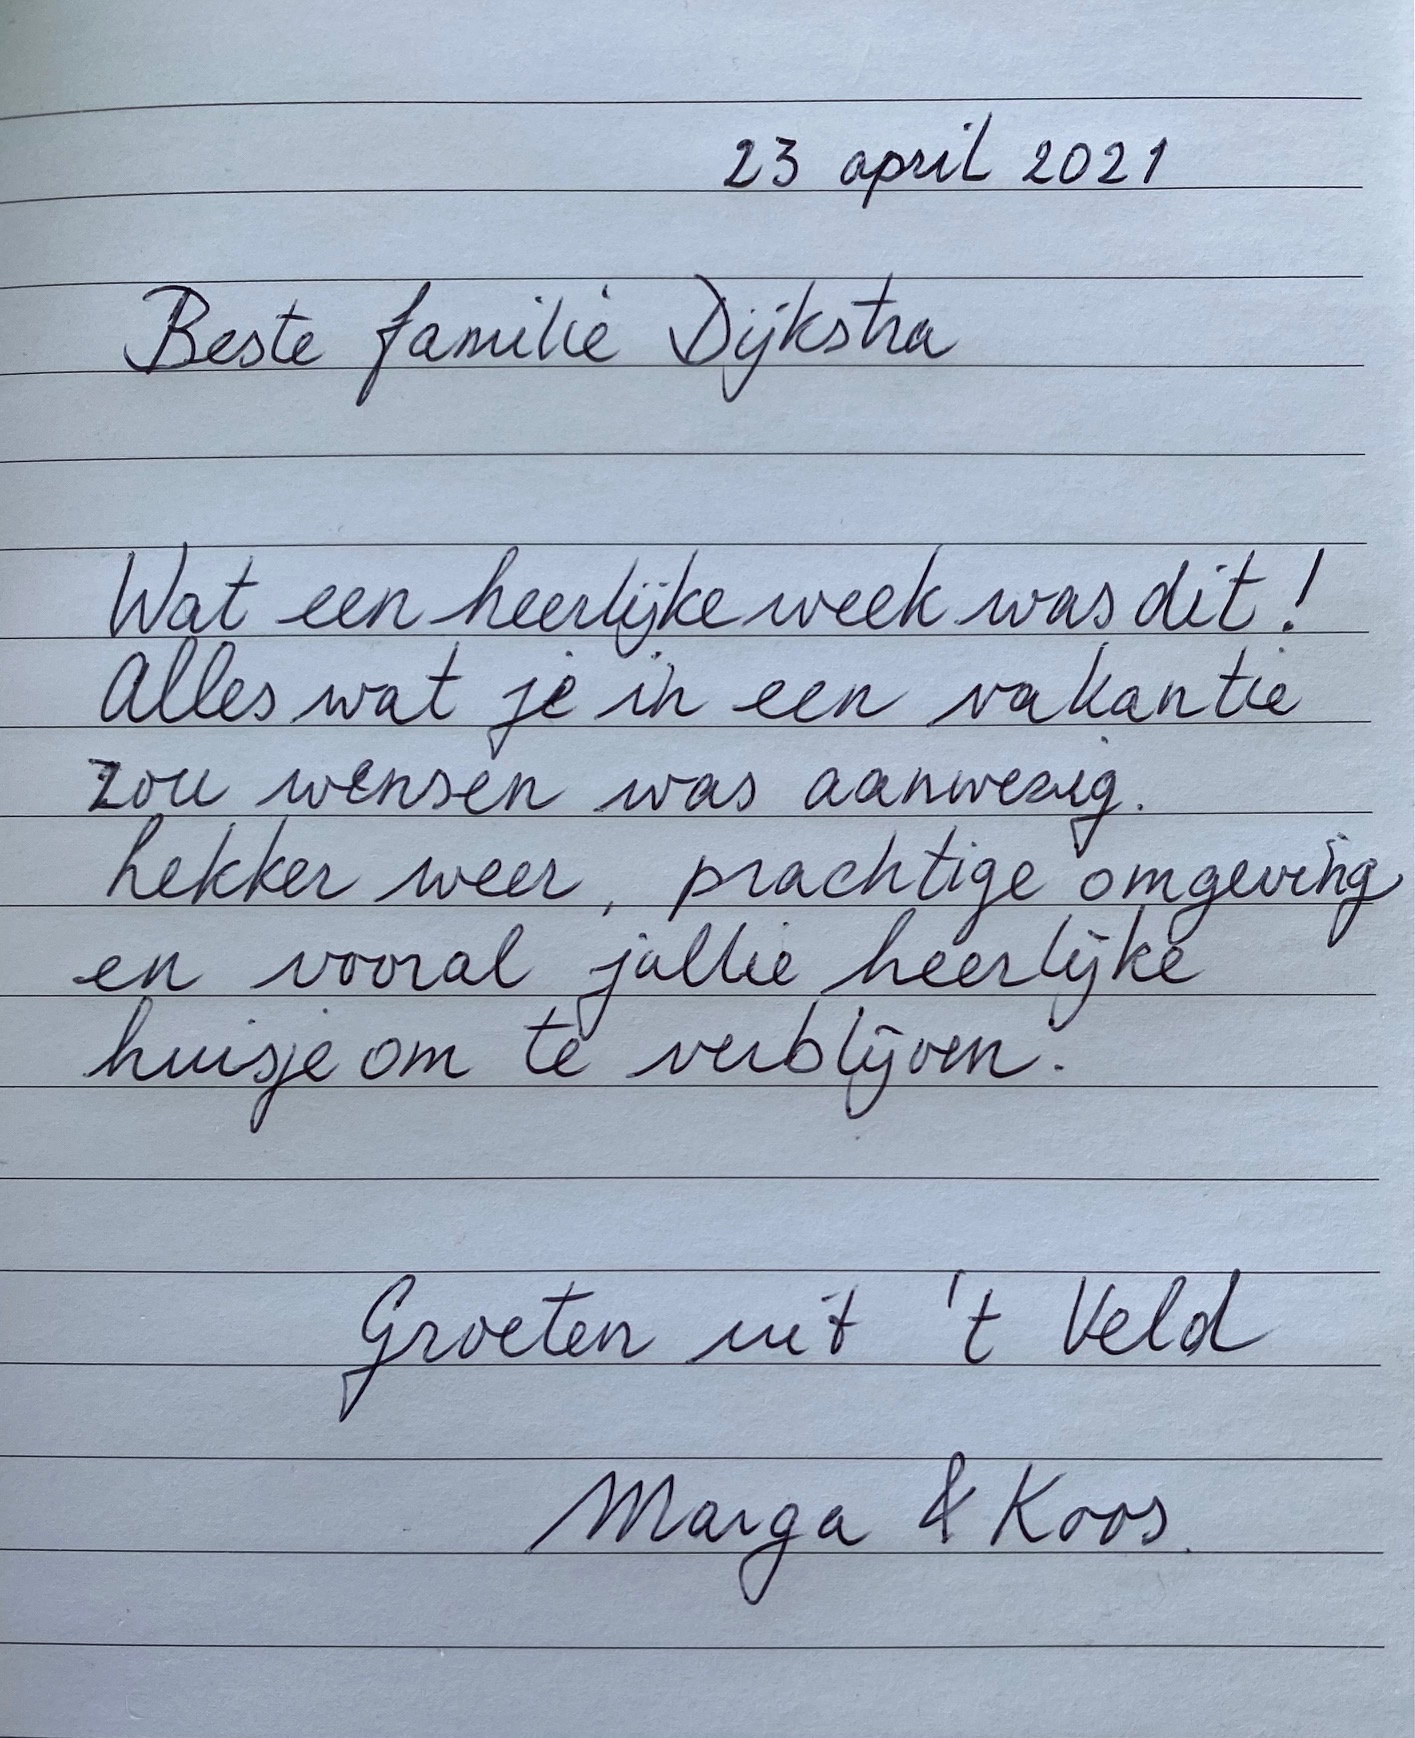 23 april 2021
Beste familie Dijkstra
Wat een heerlijke week was dit!
Alles wat je in een vakantie
zou wensen was aanwezig.
Lekker weer, prachtige omgeving
en vooral jullie heerlijke
huisje om te verblijven.
Groeten uit 't Veld
Marga & Koos.